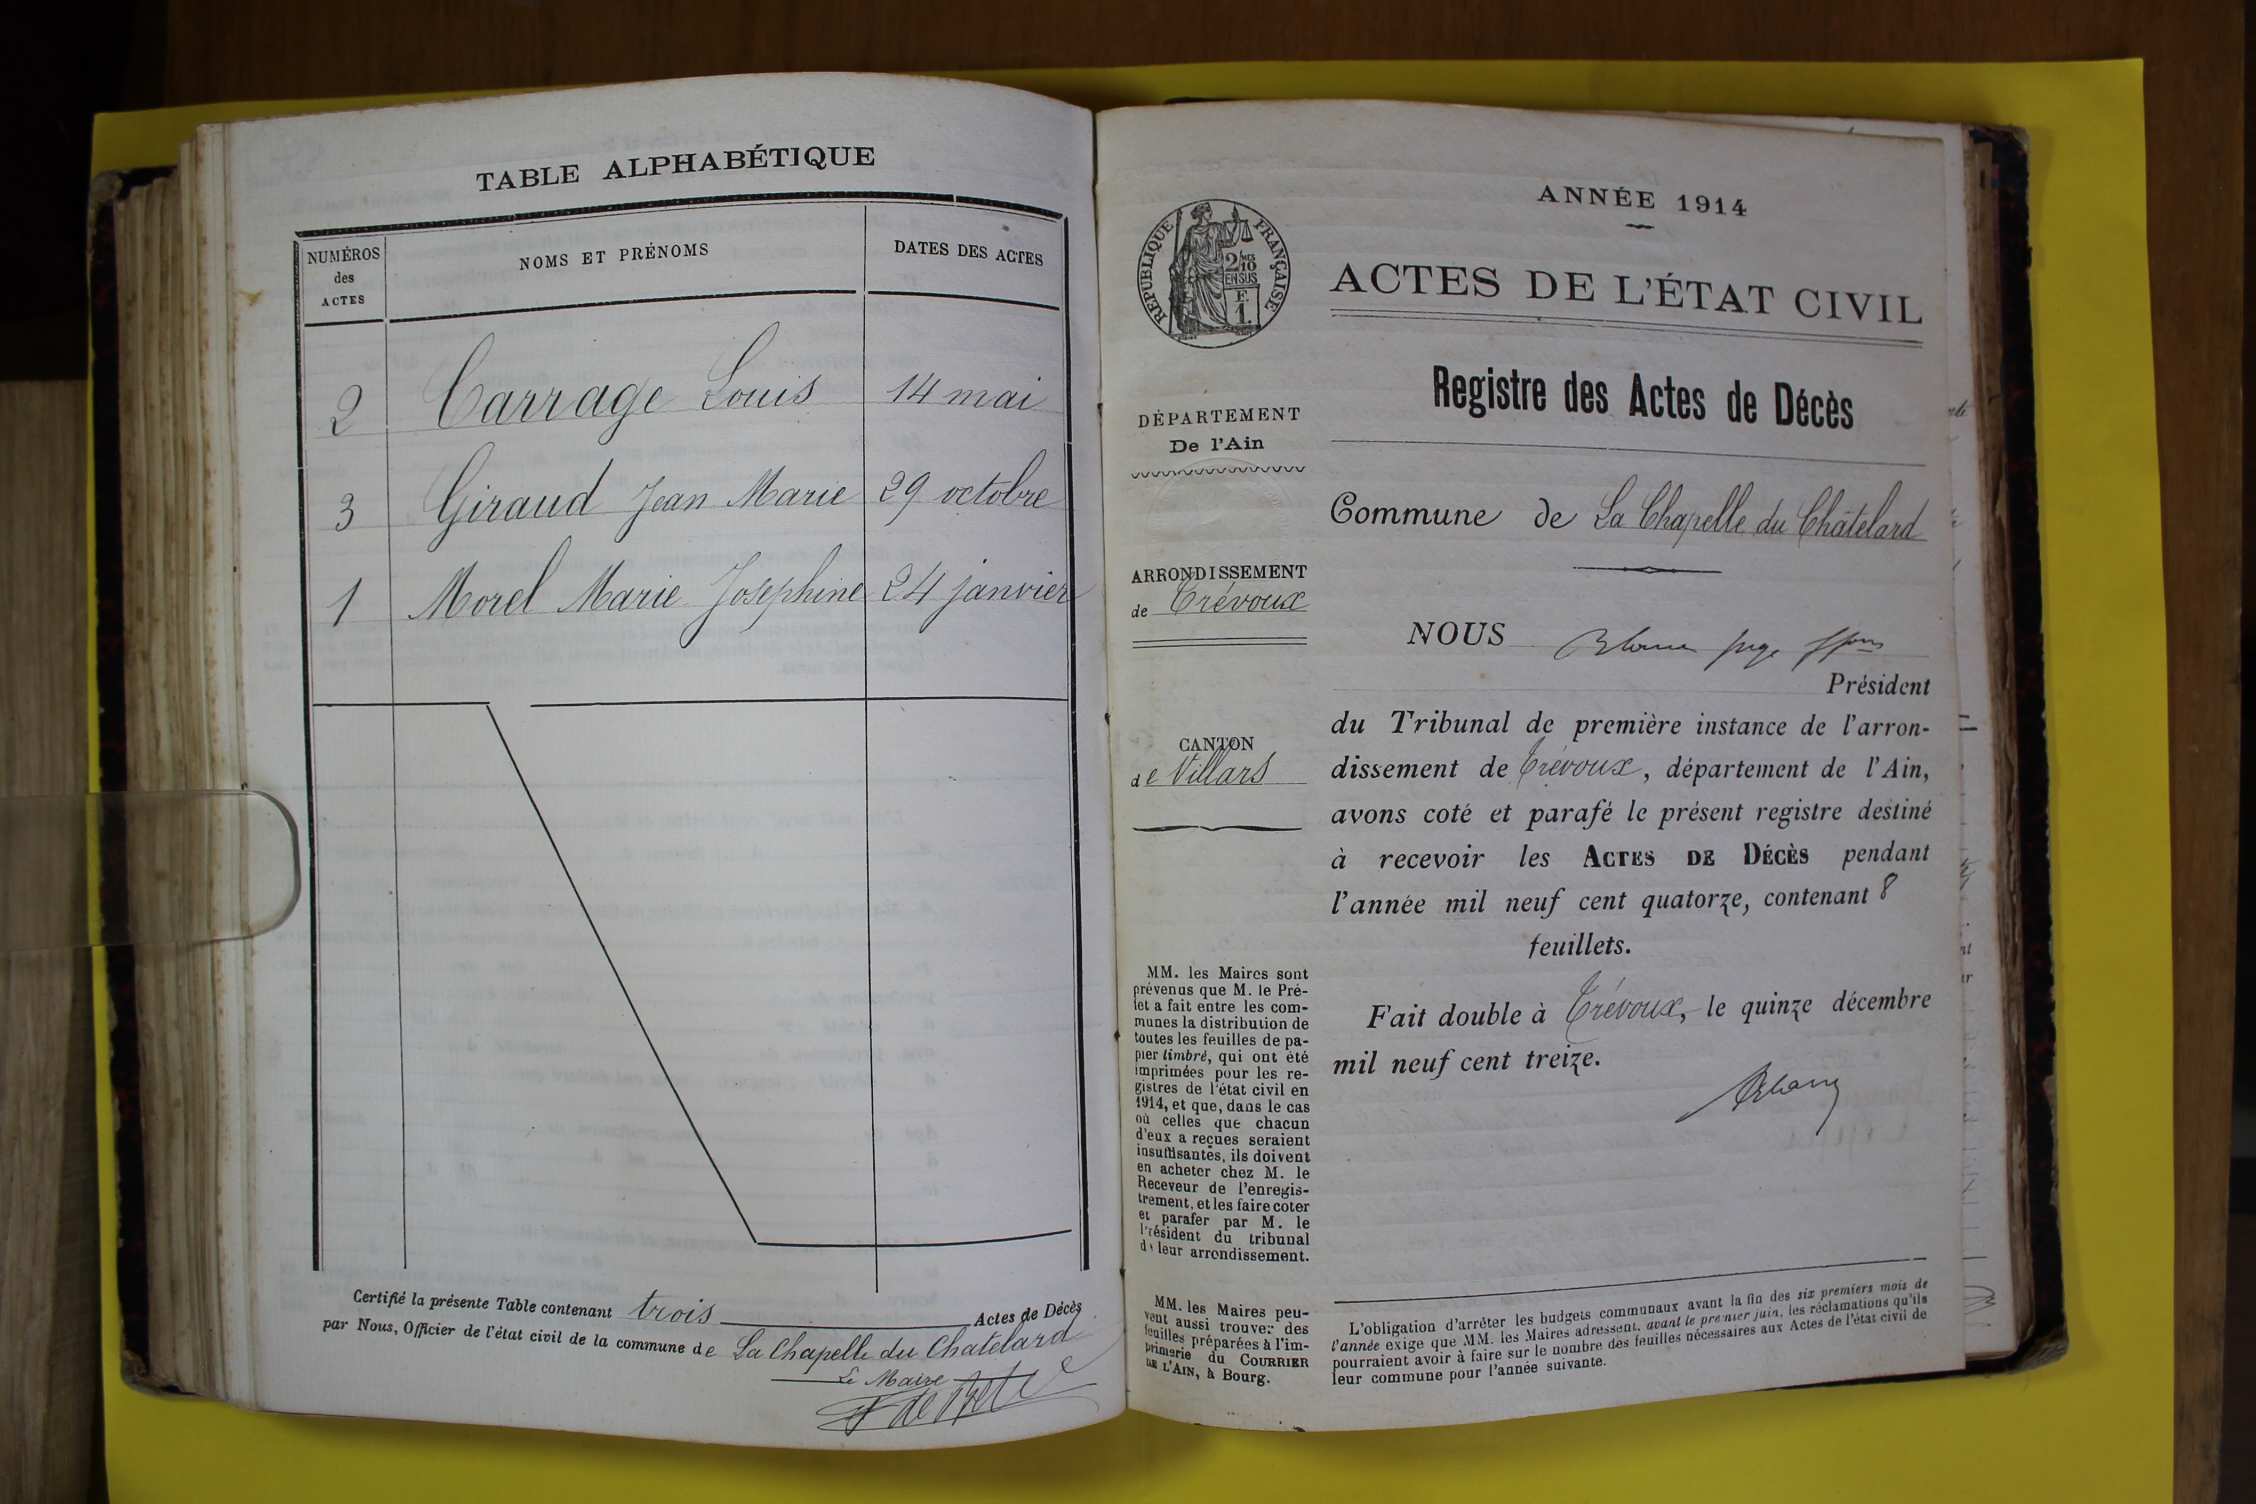 TABLE ALPHABÉTIQUE
NUMÉROS des ACTES
NOMS ET PRÉNOMS
DATES DES ACTES
2 Carrage Louis 14 mai
3 Giraud Jean Marie 29 octobre
1 Morel Marie Joséphine 24 janvier
Certifié la présente Table contenant trois Actes de Décès
par Nous, Officier de l'état civil de la commune de La Chapelle du Chatelard
Le Maire
ANNÉE 1914
RÉPUBLIQUE FRANÇAISE
2/10
EN SUS
F.
1.
ACTES DE L'ÉTAT CIVIL
Registre des Actes de Décès
DÉPARTEMENT
De l'Ain
Commune de La Chapelle du Châtelard
ARRONDISSEMENT
de Trévoux
NOUS
Président
CANTON
de Villars
du Tribunal de première instance de l'arron-
dissement de Trévoux, département de l'Ain,
avons coté et parafé le présent registre destiné
à recevoir les ACTES DE DÉCÈS pendant
l'année mil neuf cent quatorze, contenant 8
feuillets.
Fait double à Trévoux, le quinze décembre
mil neuf cent treize.
MM. les Maires sont
prévenus que M. le Pré-
fet a fait entre les com-
munes la distribution de
toutes les feuilles de pa-
pier timbré, qui ont été
imprimées pour les re-
gistres de l'état civil en
1914, et que, dans le cas
où celles que chacun
d'eux a reçues seraient
insuffisantes, ils doivent
en acheter chez M. le
Receveur de l'enregis-
trement, et les faire coter
et parafer par M. le
Président du tribunal
de leur arrondissement.
MM. les Maires peu-
vent aussi trouver des
feuilles préparées à l'im-
primerie du COURRIER
DE L'AIN, à Bourg.
L'obligation d'arrêter les budgets communaux avant la fin des six premiers mois de
l'année exige que MM. les Maires adressent, avant le premier juin, les réclamations qu'ils
pourraient avoir à faire sur le nombre des feuilles nécessaires aux Actes de l'état civil de
leur commune pour l'année suivante.